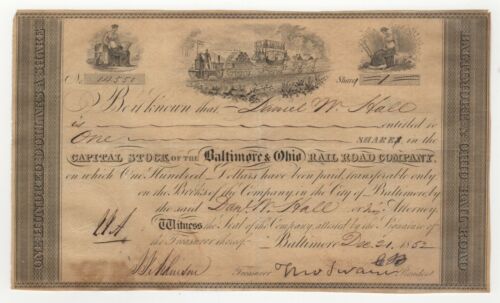 ONE HUNDRED DOLLARS A SHARE
No. 14550
Shares 1
Be it known that Daniel W. Hall
is entitled to
One SHARE
in the
CAPITAL STOCK OF THE Baltimore & Ohio RAIL ROAD COMPANY,
on which One Hundred Dollars have been paid, transferable only
on the Books of the Company in the City of Baltimore by
the said Danl. W. Hall or his Attorney.
Witness the Seal of the Company, attested by the Signature of
the Treasurer thereof
Baltimore Dec 31 1852
Treasurer
Tho Swann President